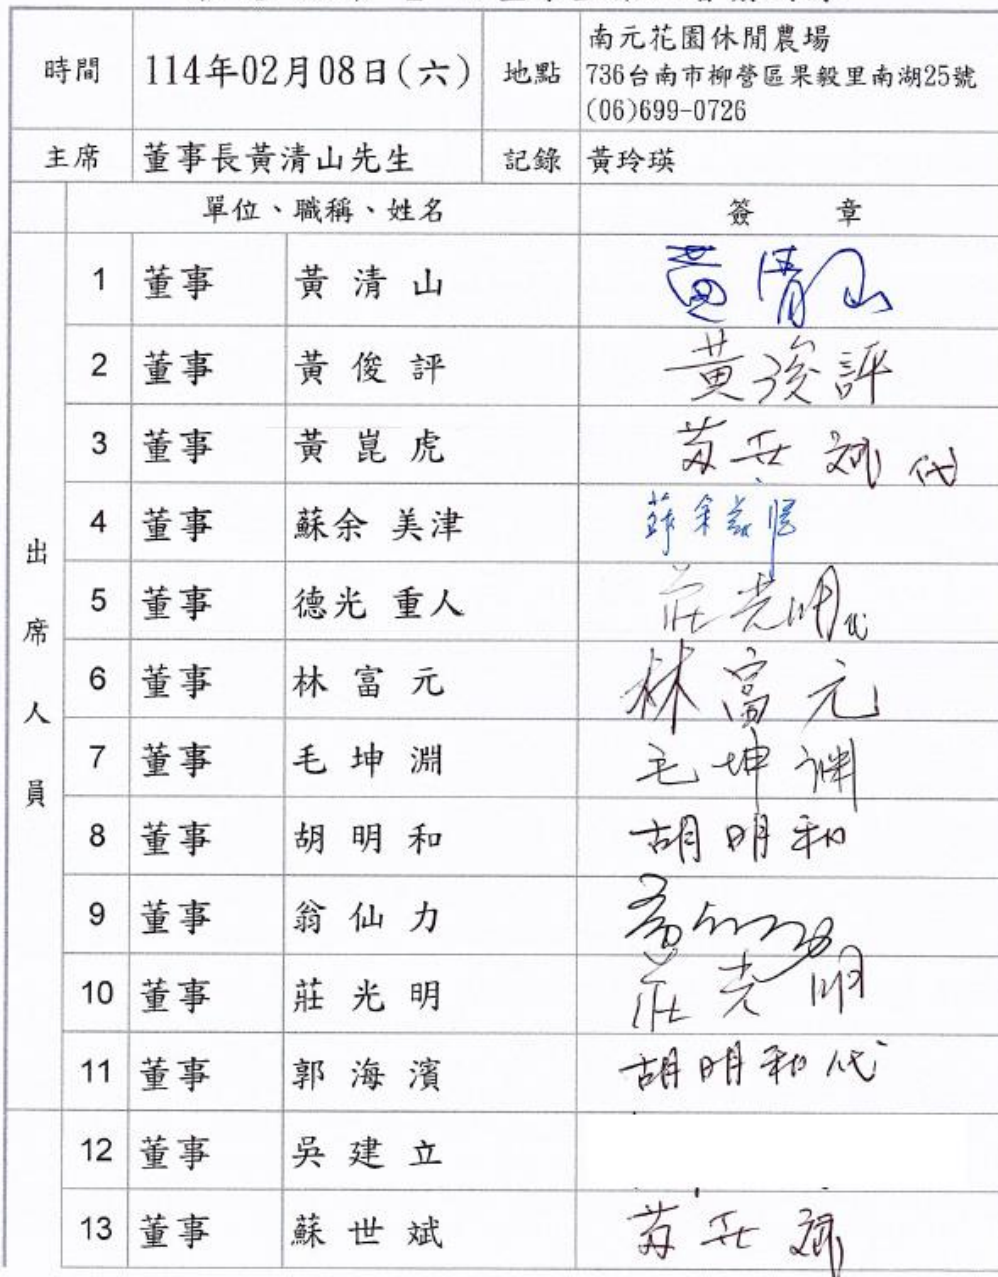 時間 114年02月08日(六) 地點 南元花園休閒農場
736台南市柳營區果毅里南湖25號
(06)699-0726
主席 董事長黃清山先生 記錄 黃玲瑛
單位、職稱、姓名 簽 章
出席人員
1 董事 黃清山 黃清山
2 董事 黃俊評 黃俊評
3 董事 黃崑虎 苏世斌代
4 董事 蘇余 美津 蘇余美津
5 董事 德光 重人 莊光明代
6 董事 林富元 林富元
7 董事 毛坤淵 毛坤渊
8 董事 胡明和 胡明和
9 董事 翁仙力 翁仙力
10 董事 莊光明 莊光明
11 董事 郭海濱 胡明和代
12 董事 吳建立
13 董事 蘇世斌 苏世斌